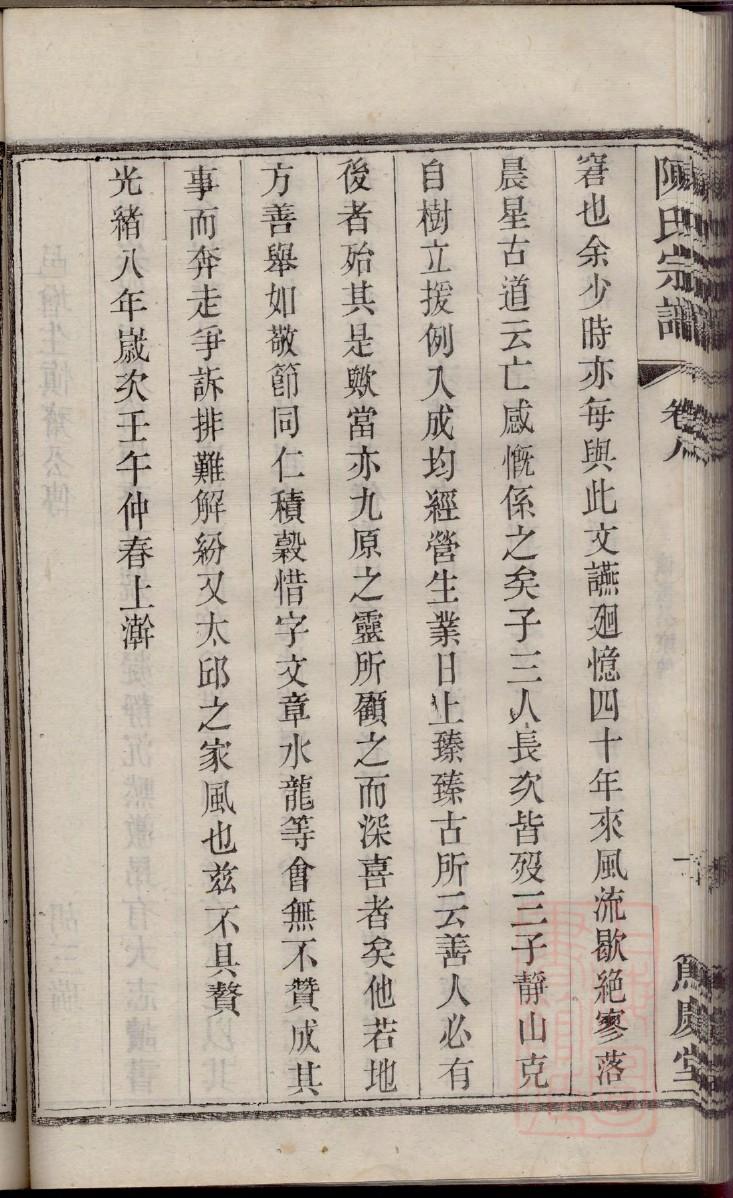 陳氏宗譜 卷八 篤慶堂
窘也余少時亦每與此文讌廻憶四十年來風流歇絕寥落
晨星古道云亡感慨係之矣子三人長次皆歿三子靜山克
自樹立援例入成均經營生業日上臻臻古所云善人必有
後者殆其是歟當亦九原之靈所顧之而深喜者矣他若地
方善舉如敬節同仁積穀惜字文章水龍等會無不贊成其
事而奔走爭訴排難解紛又太邱之家風也茲不具贅
光緒八年歲次壬午仲春上澣